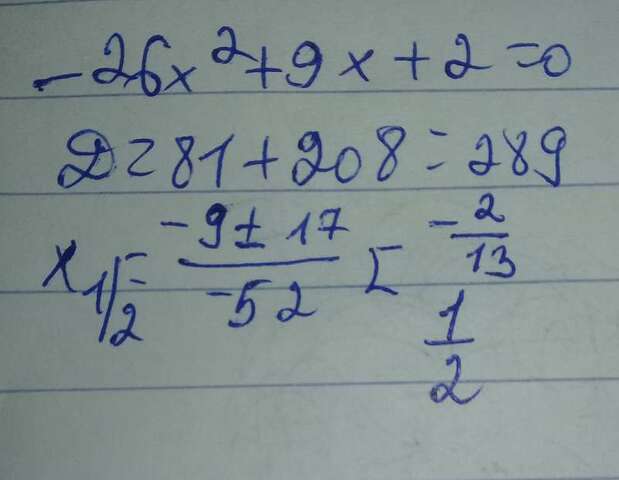 -26x²+9x+2=0
D=81+208=289
x₁/₂= (-9±17)/(-52) [ -2/13
1/2